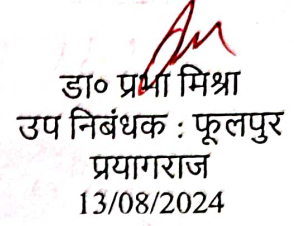 डा० प्रभा मिश्रा
उप निबंधक : फूलपुर
प्रयागराज
13/08/2024